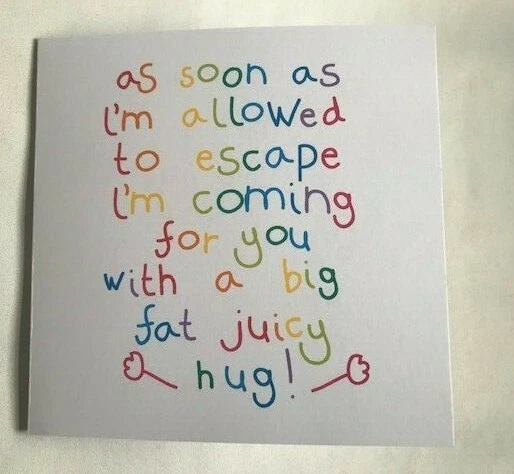 as soon as
I'm allowed
to escape
I'm coming
for you
with a big
fat juicy
hug!